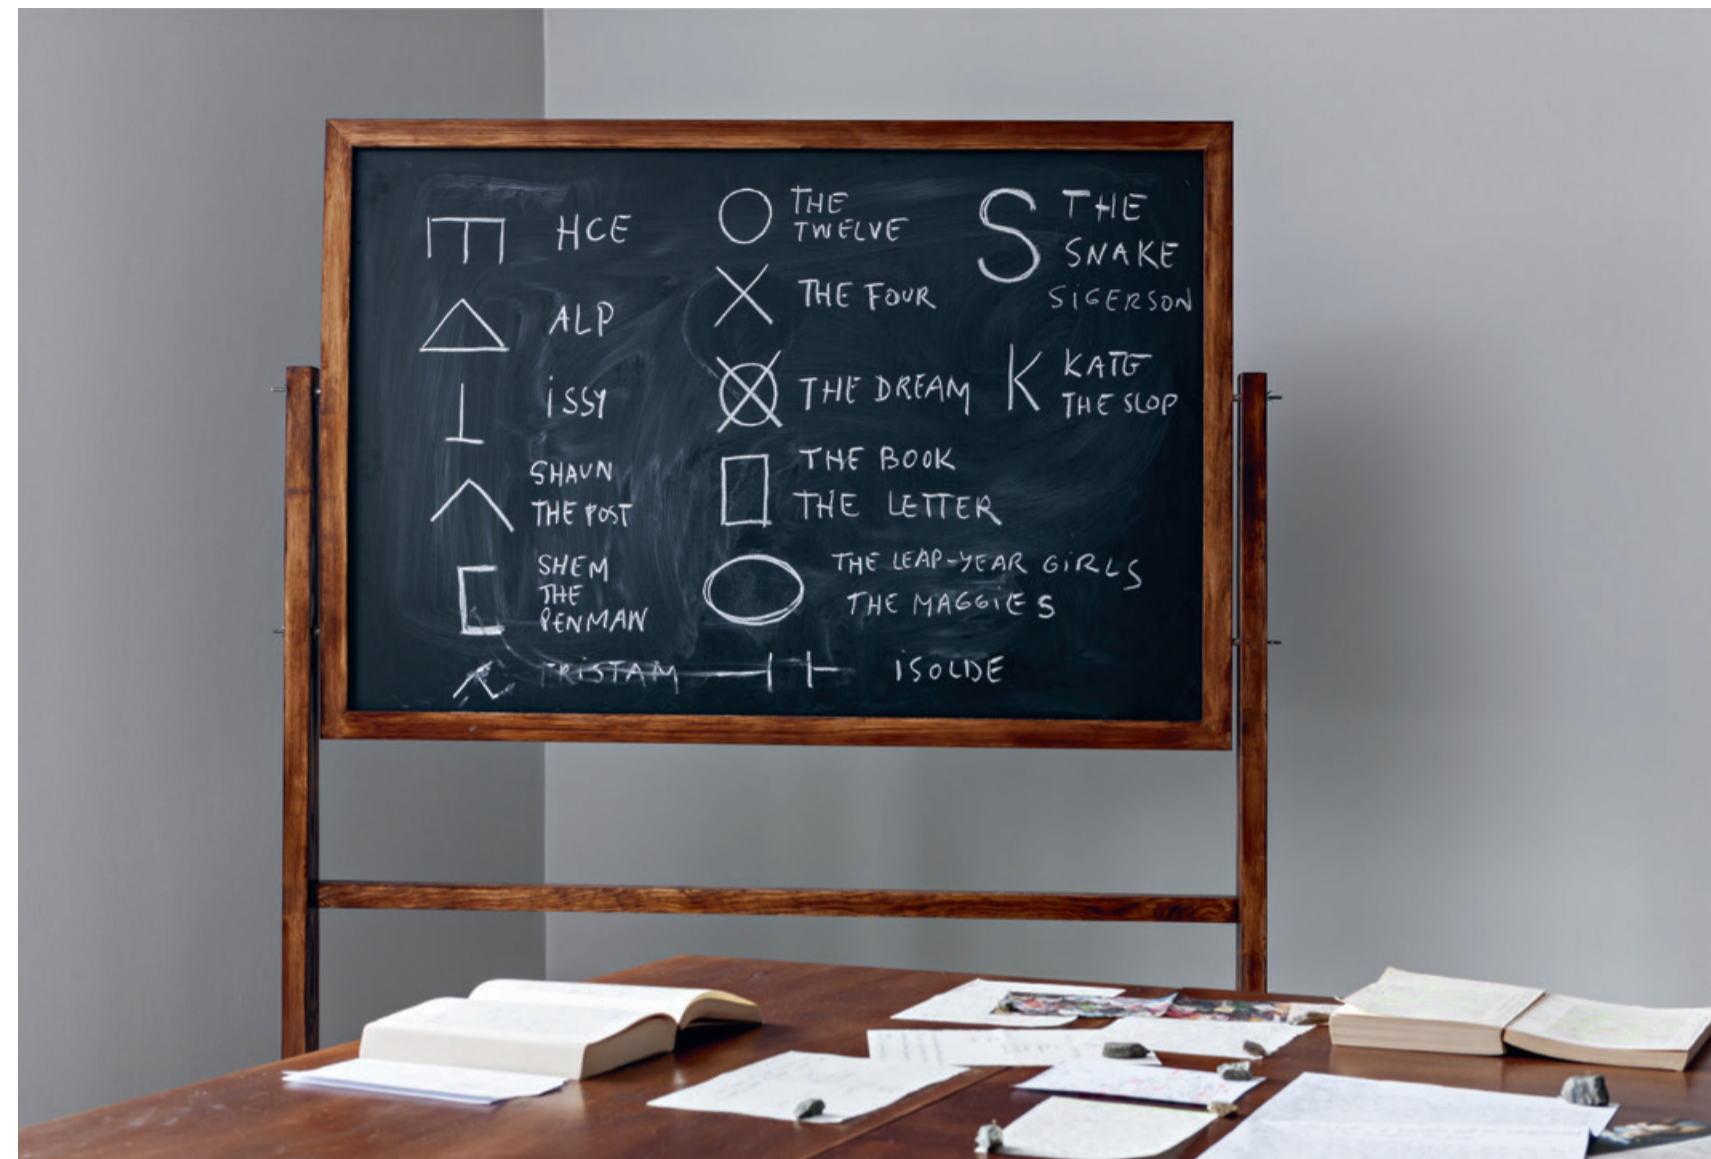 HCE
ALP
iSSY
SHAUN
THE POST
SHEM
THE
PENMAN
TRiSTAM
THE
TWELVE
THE FOUR
THE DREAM
THE BOOK
THE LETTER
THE LEAP-YEAR GiRLS
THE MAGGiES
iSOLDE
S THE
SNAKE
SiGERSON
K KATE
THE SLOP